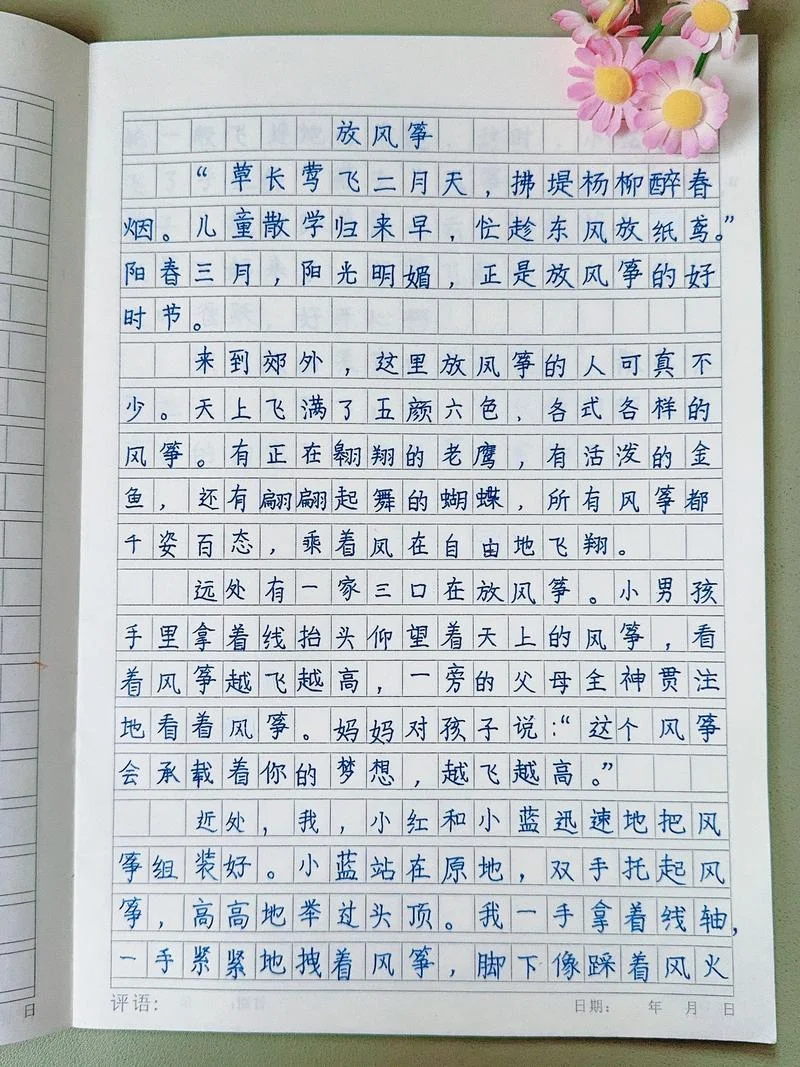 放风筝
“草长莺飞二月天，拂堤杨柳醉春
烟。儿童散学归来早，忙趁东风放纸鸢。”
阳春三月，阳光明媚，正是放风筝的好
时节。
来到郊外，这里放风筝的人可真不
少。天上飞满了五颜六色、各式各样的
风筝。有正在翱翔的老鹰，有活泼的金
鱼，还有翩翩起舞的蝴蝶，所有风筝都
千姿百态，乘着风在自由地飞翔。
远处有一家三口在放风筝。小男孩
手里拿着线抬头仰望着天上的风筝，看
着风筝越飞越高，一旁的父母全神贯注
地看着风筝。妈妈对孩子说：“这个风筝
会承载着你的梦想，越飞越高。”
近处，我，小红和小蓝迅速地把风
筝组装好。小蓝站在原地，双手托起风
筝，高高地举过头顶。我一手拿着线轴，
一手紧紧地拽着风筝，脚下像踩着风火
评语：
日期： 年 月 日
日